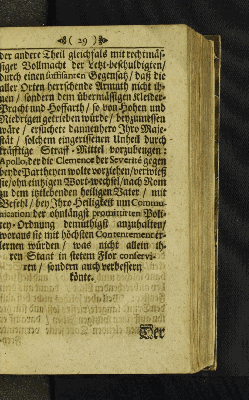 ( 29 )
der andere Theil gleichfals mit rechtmäs-
siger Vollmacht der Letzt-beschuldigten/
durch einen süffisanten Gegensatz/ daß die
aller Orten herrschende Armuth nicht ih-
nen / sondern dem übermässigen Kleider-
Pracht und Hoffarth / so von Hohen und
Niedrigen getrieben würde / beyzumessen
wäre / ersuchete dannenhero Ihro Maje-
stät / solchem eingerissenen Unheil durch
kräfftige Straff-Mittel vorzubiegen;
Apollo, der die Clemence der Severité gegen
beyde Partheyen wolte vorziehen/verwieß
sie/ohn eintzigen Wort-wechsel/nach Rom
zu dem itzlebenden heiligen Vater / mit
Befehl / bey Ihro-Heiligkeit um Commu-
nication der ohnlängst promittirten Poli-
cey-Ordnung demüthigst anzuhalten/
woraus sie mit höchsten Contentement er-
lernen würden / was nicht allein ih-
ren Staat in stetem Flor conservi-
ren / sondern auch verbessern
könte.
Der